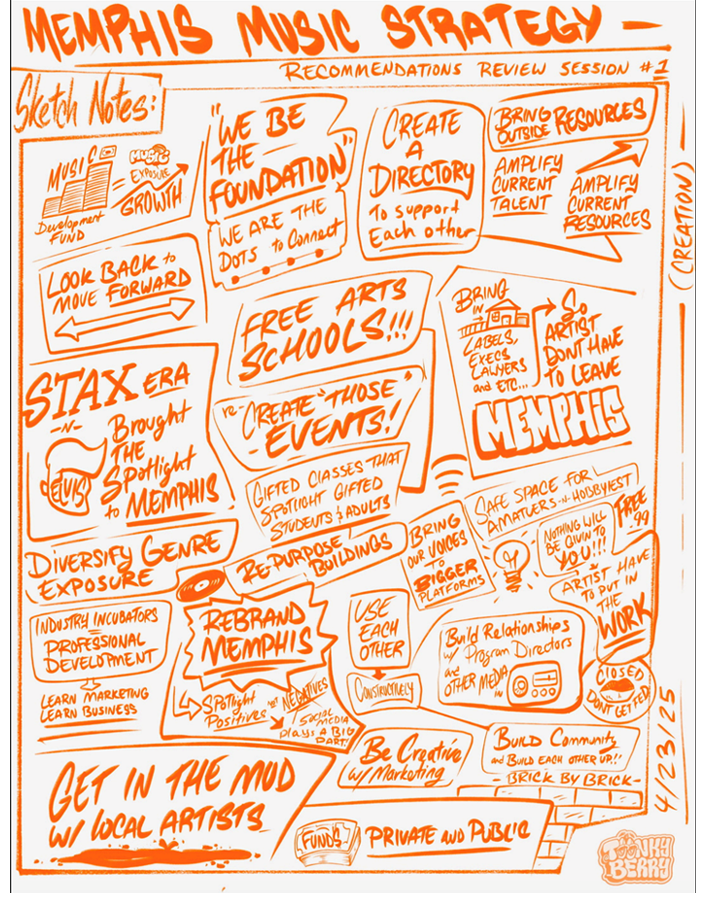 MEMPHIS MUSIC STRATEGY —
RECOMMENDATIONS REVIEW SESSION #1
Sketch Notes:
MUSIC
Development
FUND
MUSIC
EXPOSURE
GROWTH
"WE BE
THE
FOUNDATION"
WE ARE THE
DOTS to Connect
CREATE
A
DIRECTORY
To support
Each other
BRING
OUTSIDE RESOURCES
AMPLIFY
CURRENT
TALENT
AMPLIFY
CURRENT
RESOURCES
(CREATION)
LOOK BACK to
MOVE FORWARD
FREE ARTS
SCHOOLS!!!
BRING
IN
LABELS,
EXECS
LAWYERS
and ETC...
SO
ARTIST
DONT HAVE
TO LEAVE
MEMPHIS
STAX ERA
-N-
ELVIS
Brought
THE
Spotlight
to MEMPHIS
re-CREATE "THOSE"
EVENTS!
GIFTED CLASSES THAT
SPOTLIGHT GIFTED
STUDENTS & ADULTS
SAFE SPACE FOR
AMATUERS-N-HOBBYIEST
FREE
.99
NOTHING WILL
BE GIVIN TO
YOU!!!
ARTIST HAVE
TO PUT IN
THE
WORK
BRING
OUR VOICES
TO
BIGGER
PLATFORMS
DIVERSIFY GENRE
EXPOSURE
RE-PURPOSE
BUILDINGS
INDUSTRY INCUBATORS
PROFESSIONAL
DEVELOPMENT
LEARN MARKETING
LEARN BUSINESS
REBRAND
MEMPHIS
SPOTlight
Positives not NEGATIVES
SOCIAL
MEDIA
Plays A BIG
PART!
USE
EACH
OTHER
CONSTRUCTIVELY
Build Relationships
w/ Program Directors
and
OTHER MEDIA
CLOSED
DONT GET FED
4/23/25
Be Creative
w/ Marketing
BUILD Community
and BUILD EACH OTHER UP!!
- BRICK BY BRICK -
GET IN THE MUD
W/ LOCAL ARTISTS
FUNDS
PRIVATE AND PUBLIC
TOONKY
BERRY